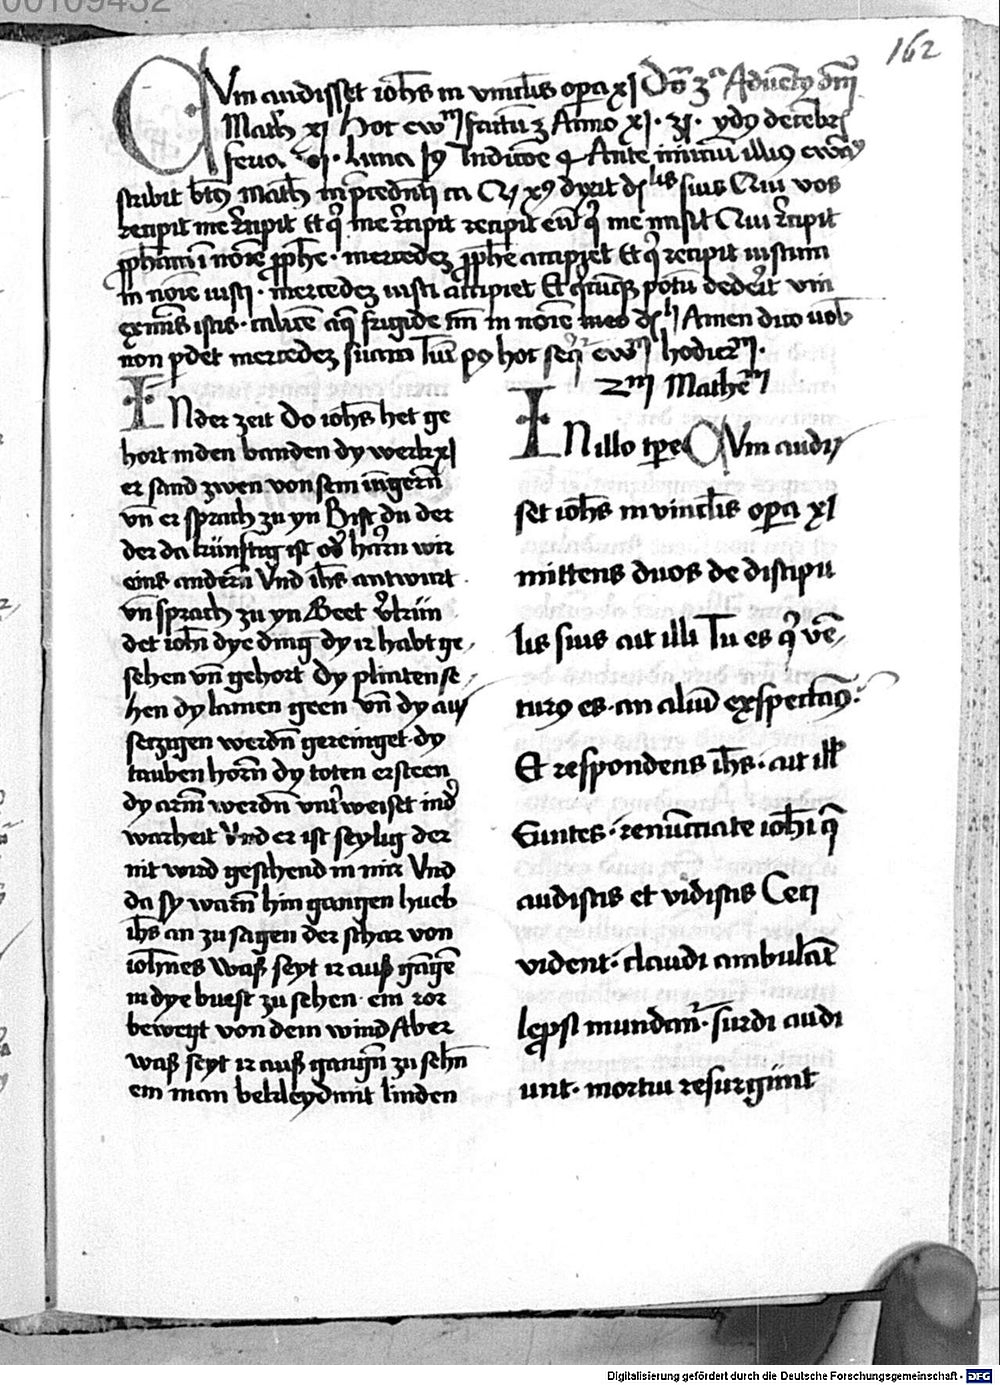 162
CVm audisset ioh̄s in vincl̄is opera xp̄i Do̅ 3ª Adue̅t9 dn̅i
Math̅ xi hoc ew̅m factu̅ Anno xi
feria luna Indict̅oe Ante initiu̅
scribit bt̅9 Math̅ dixit suis Qui vos
recipit me r̅cipit Et q̇ me r̅cipit recipit eu̅ q̇ me misit Qui r̅cipit
ꝓph̅am i̅ no̅ie ꝓph̅e · mercedez ꝓph̅e accipiet Et q̇ recipit iustum
in no̅ie iusti · mercedez iusti accipiet Et potu̅ dederit vni
ex mi̅mis istis · calice̅ aq̅ frigide in no̅ie Amen dico uob̅
non p̲det mercedez suam hoc ew̅m hodier̅m ·
Math̅e
INder zeit Do ioh̅s het ge
hort inden banden dy werk xp̄i
er sand zwen von sein iu̅ger̅n
vn̅ er sprach zu yn Bist du der
der da künftig ist od̅ har̅n wir
eins ander̅n Vnd ih̅s antwurt
vn̅ sprach zu yn Geet v̅kün
det ioh̅i dye ding dy ir habt ge
sehen vn̅ gehort Dy plinten se
hen dy lamen geen vn̅ dy au
setzigen werdn̅ gereinget · dy
tauben horn̅ dy toten ersteen
dy arm̅ werdn̅ vnt̅weiset in d̅
warheit Vnd er ist seylig der
nit wird geschend in mir Vnd
da sy warn̅ hin gangen hueb
ih̅s an zu sagen der schar von
ioh̅nes waß seyt ir auß ga̅ge̅
in dye buest zu sehen · ein ror
bewegt von dem wind Aber
waß seyt ir auß gangn̅ zu sehn̅
ein man bekleyd mit linden
IN illo tp̅e CVm audis
set ioh̅s in vincl̅is opera xp̄i
mittens duos de discipu
lis suis ait illi Tu es q̇ ve̅
tur9 es · an aliu̅ exspectam9 ·
Et respondens ih̅s · ait ill̅
Euntes · renu̅tiate ioh̅i q̅
audistis et vidistis Ceci
vident · claudi ambula̅t
lep̲si mundan̅t · surdi audi
unt · mortui resurgunt
Digitalisierung gefördert durch die Deutsche Forschungsgemeinschaft - DFG